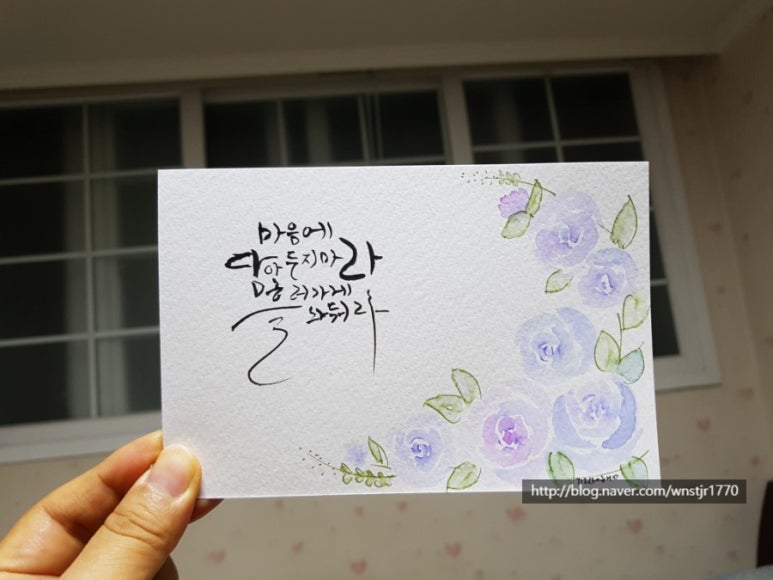 마음에
담아두지마라
흘러가게
놔둬라
http://blog.naver.com/wnstjr1770